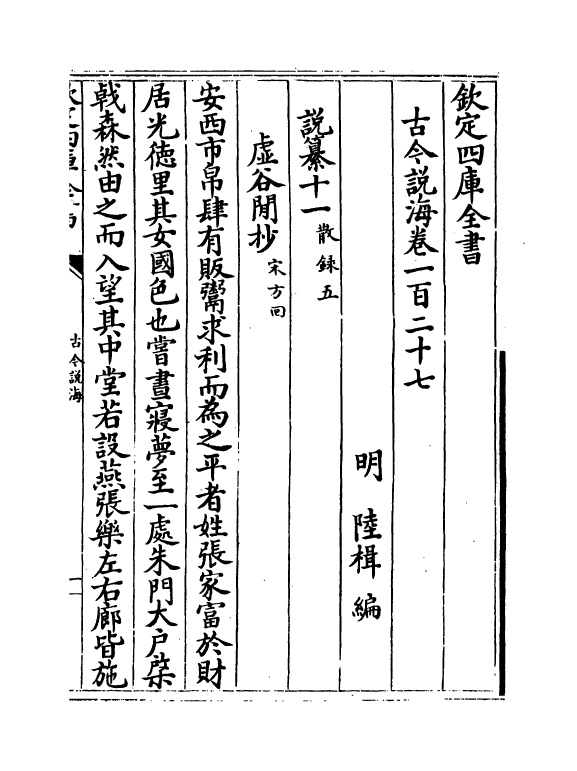 欽定四庫全書
古今說海卷一百二十七
明 陸楫 編
說纂十一 散錄五
虛谷閒抄 宋方回
安西市帛肆有販鬻求利而為之平者姓張家富於財
居光徳里其女國色也嘗晝寢夢至一處朱門大户棨
戟森然由之而入望其中堂若設燕張樂左右廊皆施
古今說海